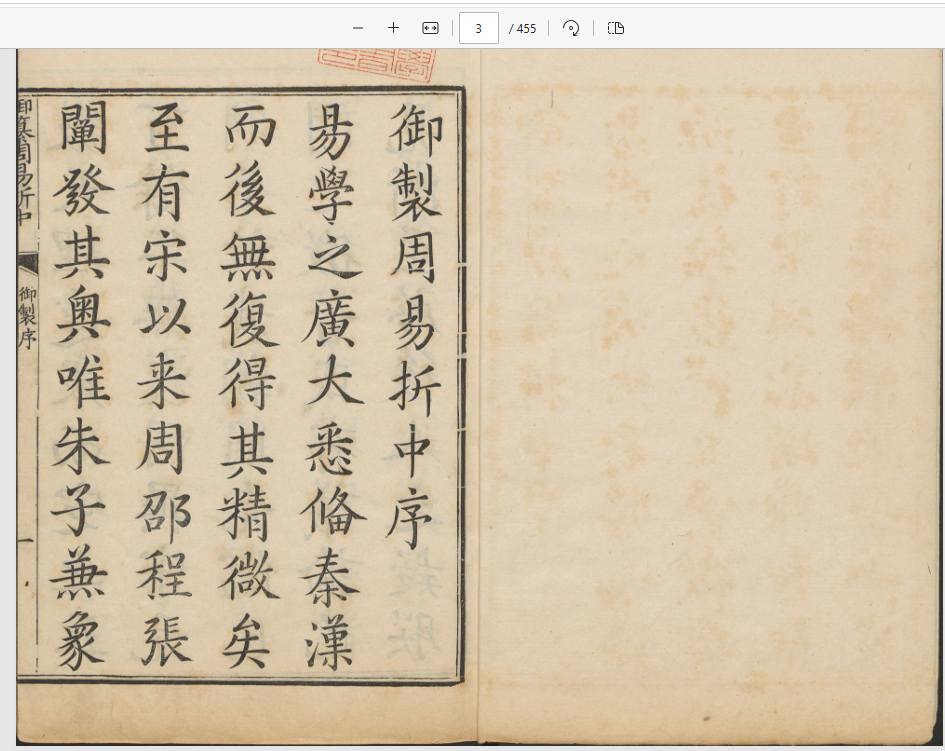 3 / 455
御製周易折中序
易學之廣大悉備秦漢
而後無復得其精微矣
至有宋以来周邵程張
闡發其奧唯朱子兼象
御纂周易折中
御製序
一